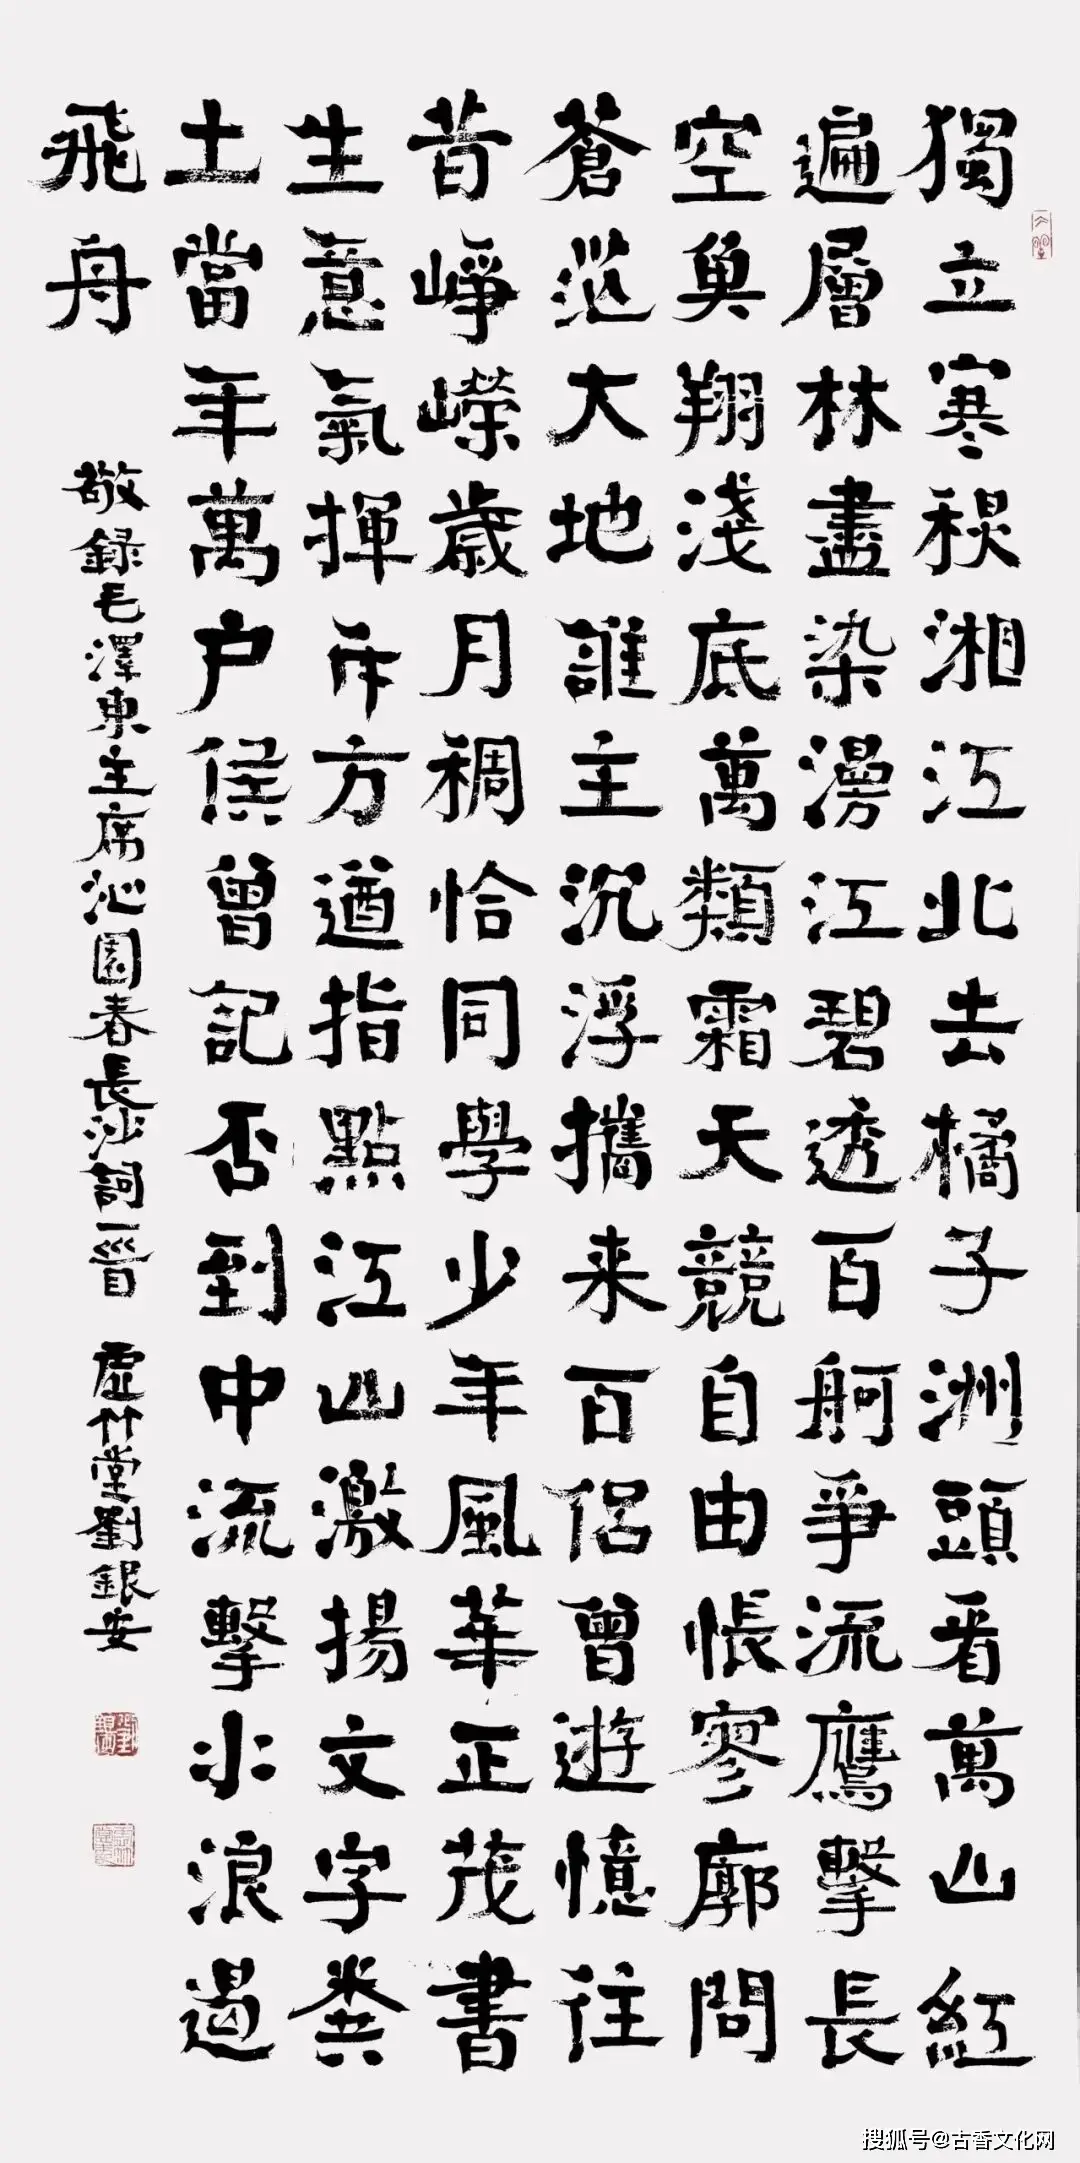 獨立寒秋湘江北去橘子洲頭看萬山紅
遍層林盡染漫江碧透百舸爭流鷹擊長
空魚翔淺底萬類霜天競自由悵寥廓問
蒼茫大地誰主沉浮攜来百侣曾遊憶往
昔崢嶸歲月稠恰同學少年風華正茂書
生意氣揮斥方遒指點江山激揚文字糞
土當年萬户侯曾記否到中流擊水浪遏
飛舟
敬録毛澤東主席沁園春長沙詞一首 虚竹堂劉銀安
搜狐号@古香文化网